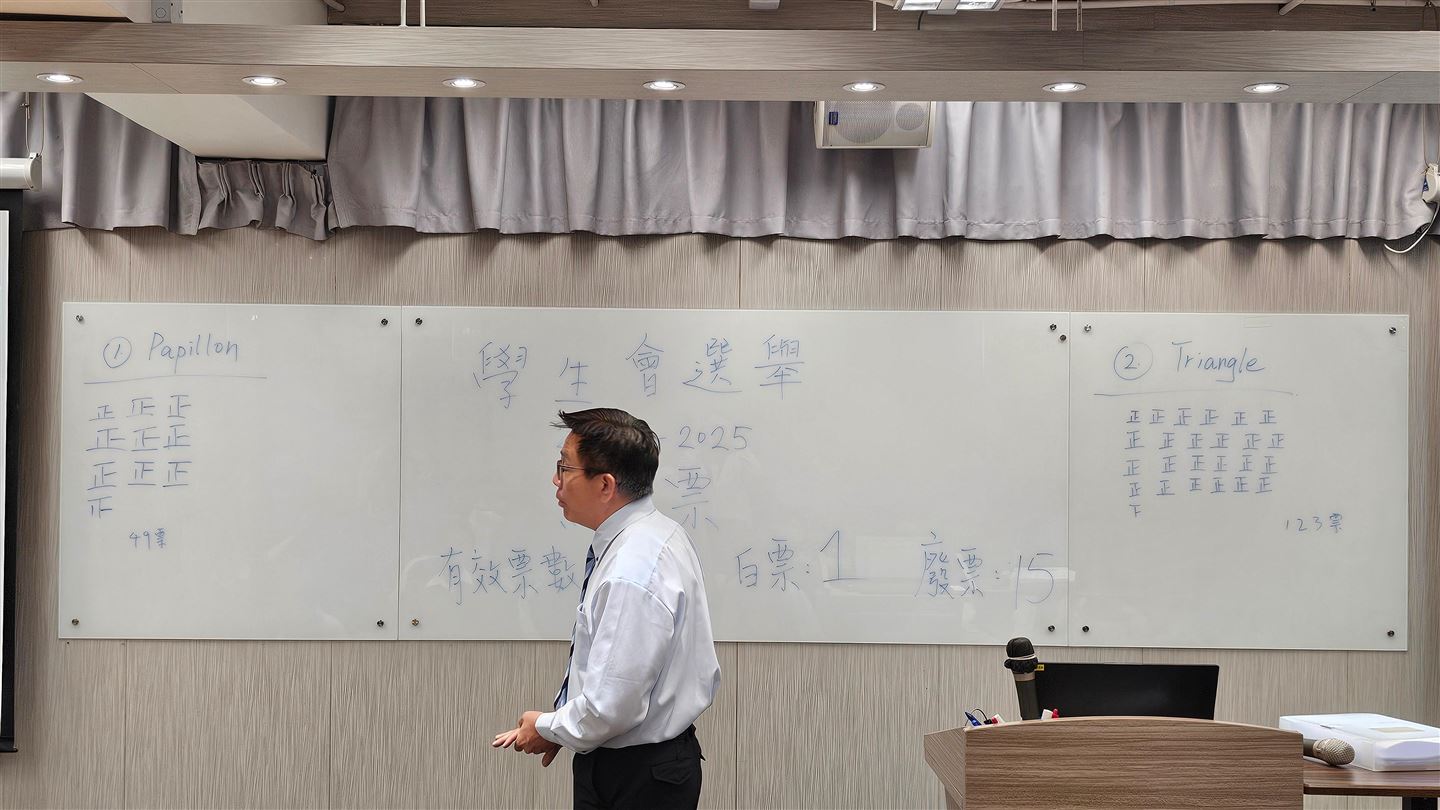 ① Papillon
正 正 正
正 正 正
正 正 正
49票
學生會選舉
-2025
票
有效票數
白票：1
廢票：15
② Triangle
正 正 正 正 正 正
正 正 正 正 正 正
正 正 正 正 正 正
正 正 正 正 正 正
下
123票